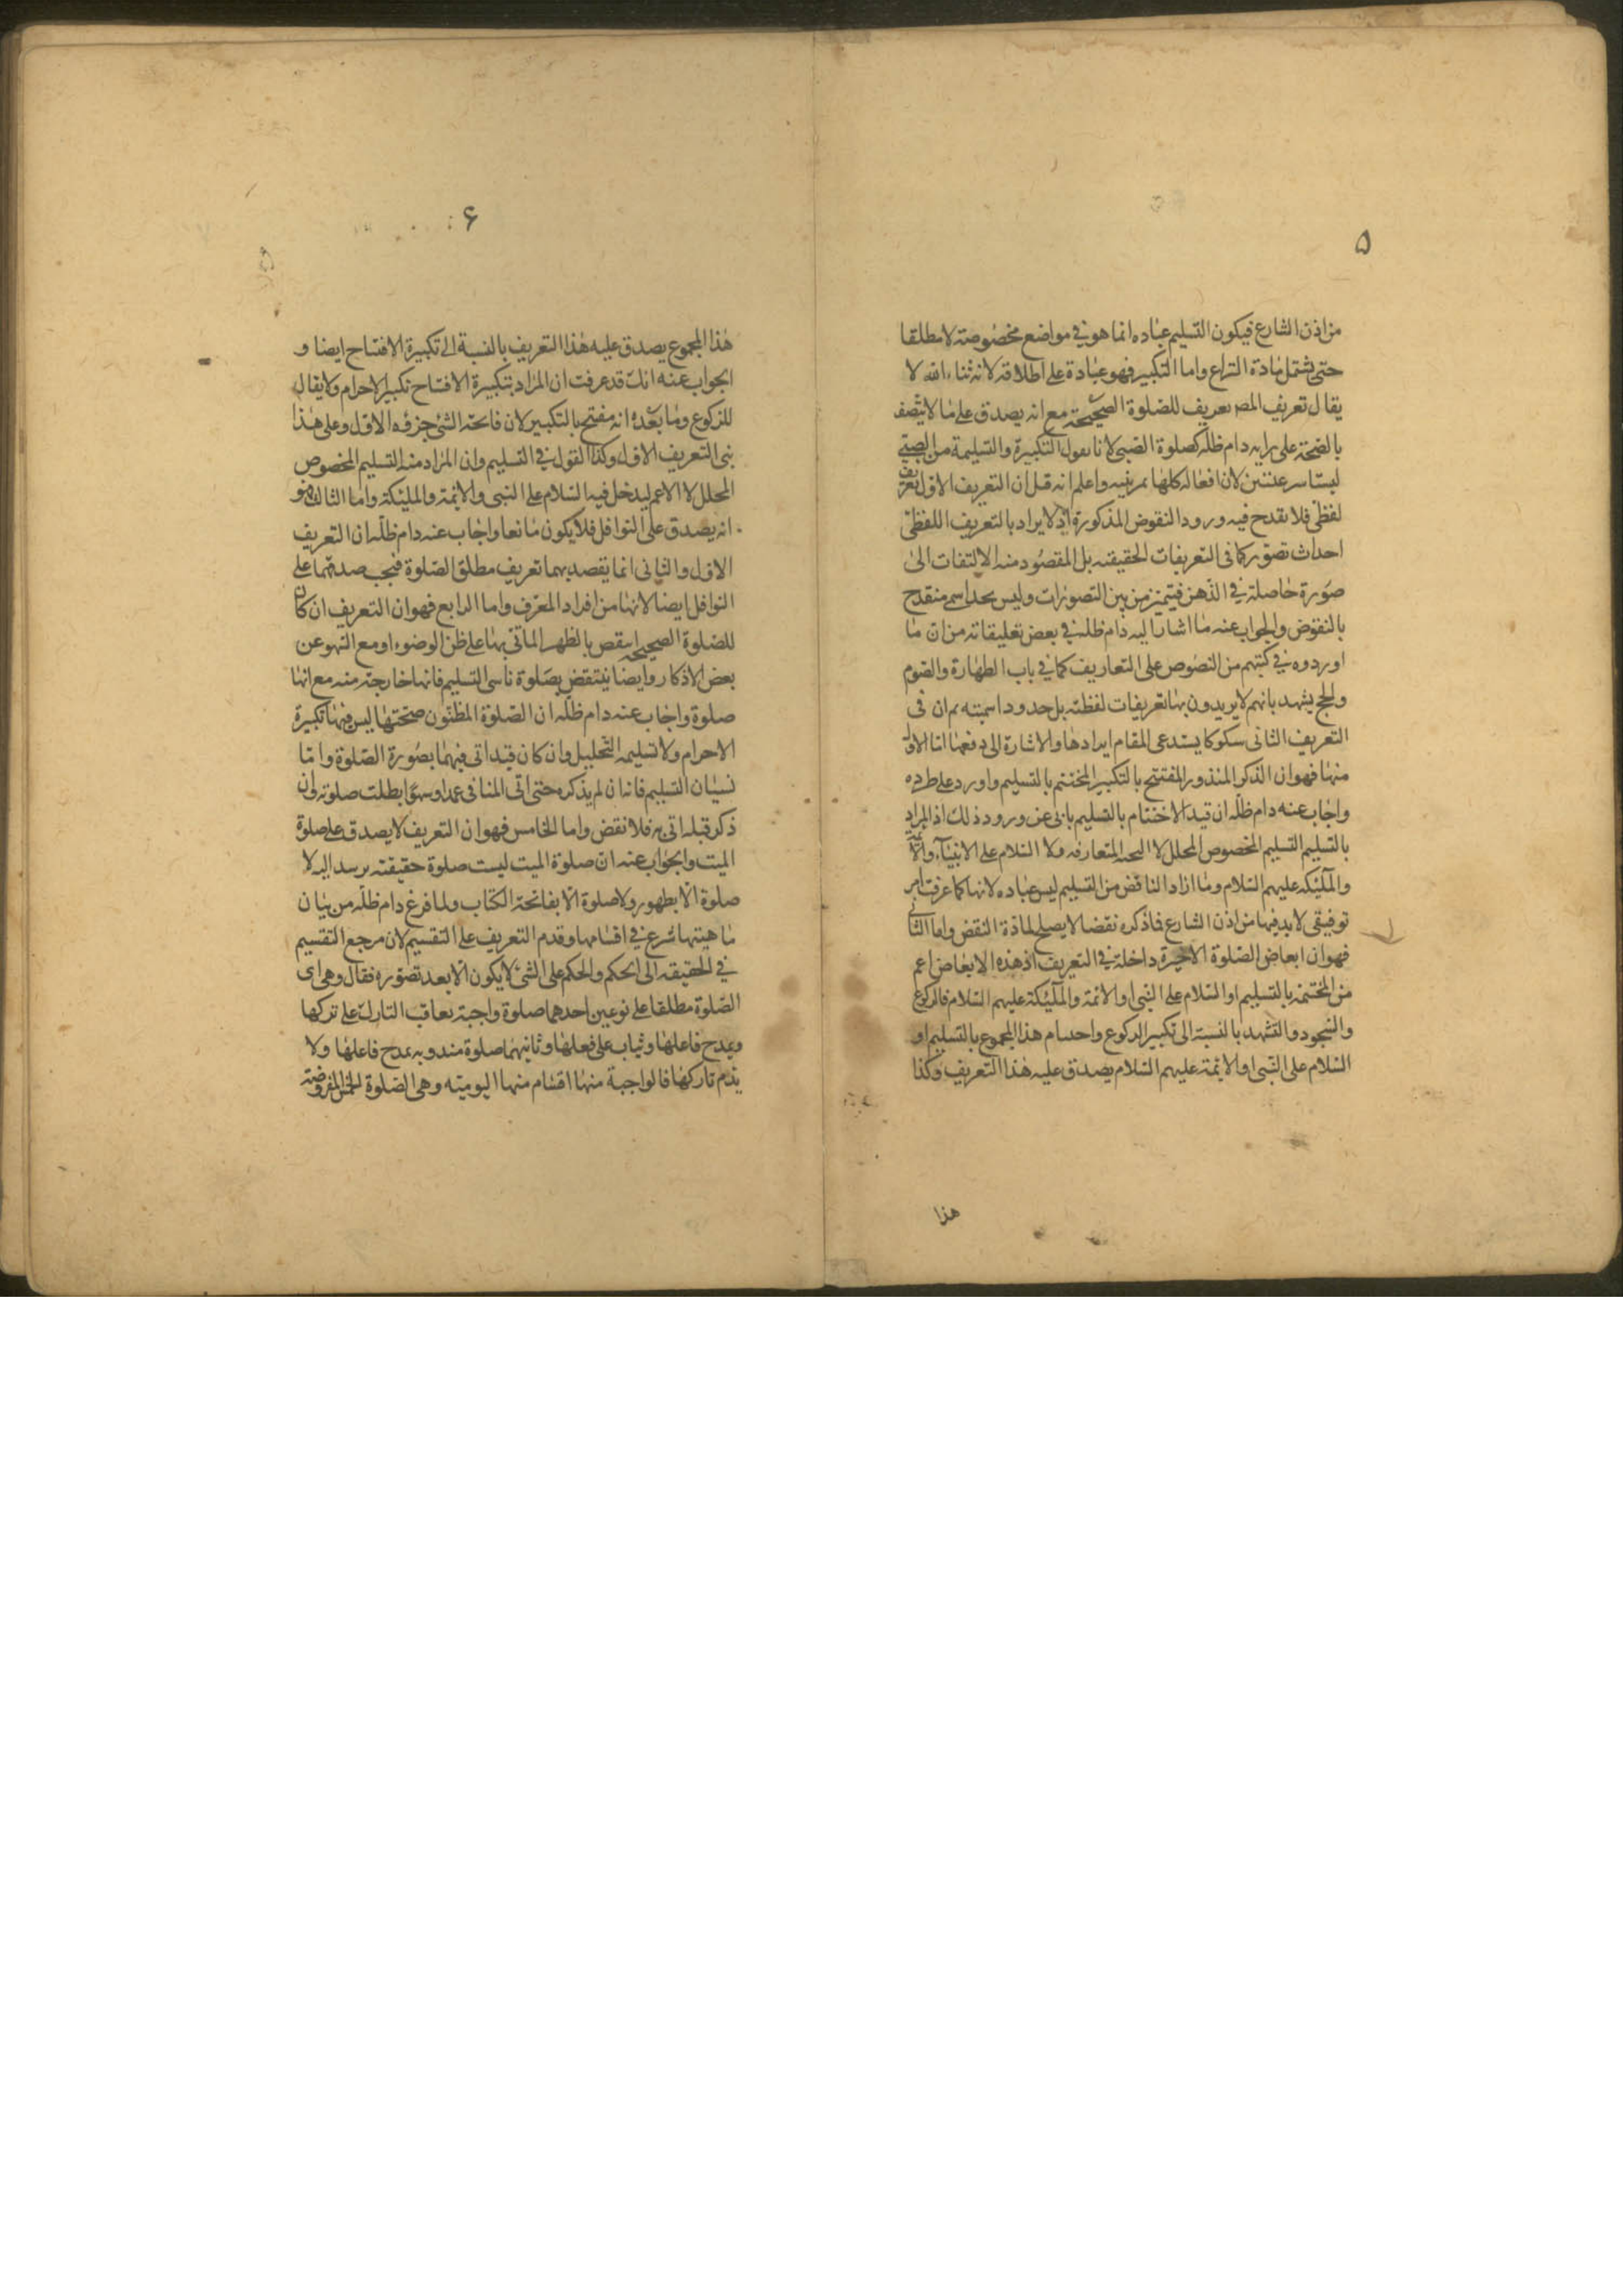 ۵
من اذن الشارع فيكون التسليم عباده انما هو في مواضع مخصوصة لا مطلقا
حتى يشتمل مادة النزاع واما التكبير فهو عبادة على اطلاقه لانه ثناء الله لا
يقال تعريف المص تعريف للصلوة الصحيحة مع انه يصدق على ما لا يتصف
بالصحة على رايه دام ظله كصلوة الصبي لانا نقول التكبيرة والتسليمة من الصبي
ليستا لان افعاله كلها تمرينيه واعلم انه قيل ان التعريف الاول تعريف
لفظي فلا يقدح فيه ورود النقوض المذكورة اذ لا يراد بالتعريف اللفظي
احداث تصور كما في التعريفات الحقيقية بل المقصود منه الالتفات الى
صورة حاصلة في الذهن فيتميز من بين التصورات وليس بحد اسمى منقدح
بالنقوض والجواب عنه ما اشار اليه دام ظله في بعض تعليقاته من ان ما
اوردوه في كتبهم من النصوص على التعاريف كما في باب الطهارة والصوم
والحج يشهد بانهم لا يريدون بها تعريفات لفظية بل حدودا اسمية ثم ان في
التعريف الثاني شكوكا يستدعى المقام ايرادها والاشارة الى دفعها اما الاول
منها فهو ان الذكر المنذور المفتتح بالتكبير المختتم بالتسليم واورد على طرده
واجاب عنه دام ظله ان قيد الاختتام بالتسليم يابى عن ورود ذلك اذ المراد
بالتسليم التسليم المخصوص المحلل لا التحية المتعارفه ولا السلام على الانبياء والائمة
والملئكة عليهم السلام وما اراد الناقض من التسليم ليس عباده لانها كما عرفت امر
توقيفى لا بد فيها من اذن الشارع فاذكره نقضا لا يصلح لمادة النقض واما الثاني
فهو ان ابعاض الصلوة الاخيرة داخلة في التعريف اذ هذه الابعاض اعم
من المختتمة بالتسليم او السلام على النبي او الائمة والملئكة عليهم السلام فالركوع
والسجود والتشهد بالنسبة الى تكبير الركوع واختتام هذا المجموع بالتسليم او
السلام على النبي او الائمة عليهم السلام يصدق عليه هذا التعريف وكذا
هذا
۶
هذا المجموع يصدق عليه هذا التعريف بالنسبة الى تكبيرة الافتتاح ايضا و
الجواب عنه انك قد عرفت ان المراد بتكبيرة الافتتاح تكبير الاحرام ولا يقال
للركوع وما بعده انه مفتتح بالتكبير لان فاتحة الشئ جزؤه الاول وعلى هذا
بنى التعريف الاول وكذا القول في التسليم وان المراد منه التسليم المخصوص
المحلل لا الاعم ليدخل فيه السلام على النبي والائمة والملئكة واما الثالث فهو
انه يصدق على النوافل فلا يكون مانعا واجاب عنه دام ظله ان التعريف
الاول والثاني انما يقصد بهما تعريف مطلق الصلوة فيجب صدقهما على
النوافل ايضا لانها من افراد المعرف واما الرابع فهو ان التعريف ان كان
للصلوة الصحيحة انتقض بالظهر الماتى بها على ظن الوضوء او مع السهو عن
بعض الاذكار وايضا ينتقض بصلوة ناسى التسليم فانها خارجة منه مع انها
صلوة واجاب عنه دام ظله ان الصلوة المظنون صحتها ليس فيها تكبيرة
الاحرام ولا تسليمه التحليل وان كان قيد اتى فيهما بصورة الصلوة واما
نسيان التسليم فانه ان لم يذكره حتى اتى المنافى عمدا وسهوا بطلت صلوته وان
ذكر قبله اتى به فلا نقض واما الخامس فهو ان التعريف لا يصدق على صلوة
الميت والجواب عنه ان صلوة الميت ليست صلوة حقيقته يرشد اليه لا
صلوة الا بطهور ولا صلوة الا بفاتحة الكتاب ولما فرغ دام ظله من بيان
ماهيتها شرع في اقسامها وقدم التعريف على التقسيم لان مرجع التقسيم
في الحقيقة الى الحكم والحكم على الشئ لا يكون الا بعد تصوره فقال وهى اى
الصلوة مطلقا على نوعين احدهما صلوة واجبة يعاقب التارك على تركها
ويمدح فاعلها ويثاب على فعلها وثانيهما صلوة مندوبه يمدح فاعلها ولا
يذم تاركها فالواجبة منها اقسام منها اليومية وهى الصلوة الخمس المفروضة